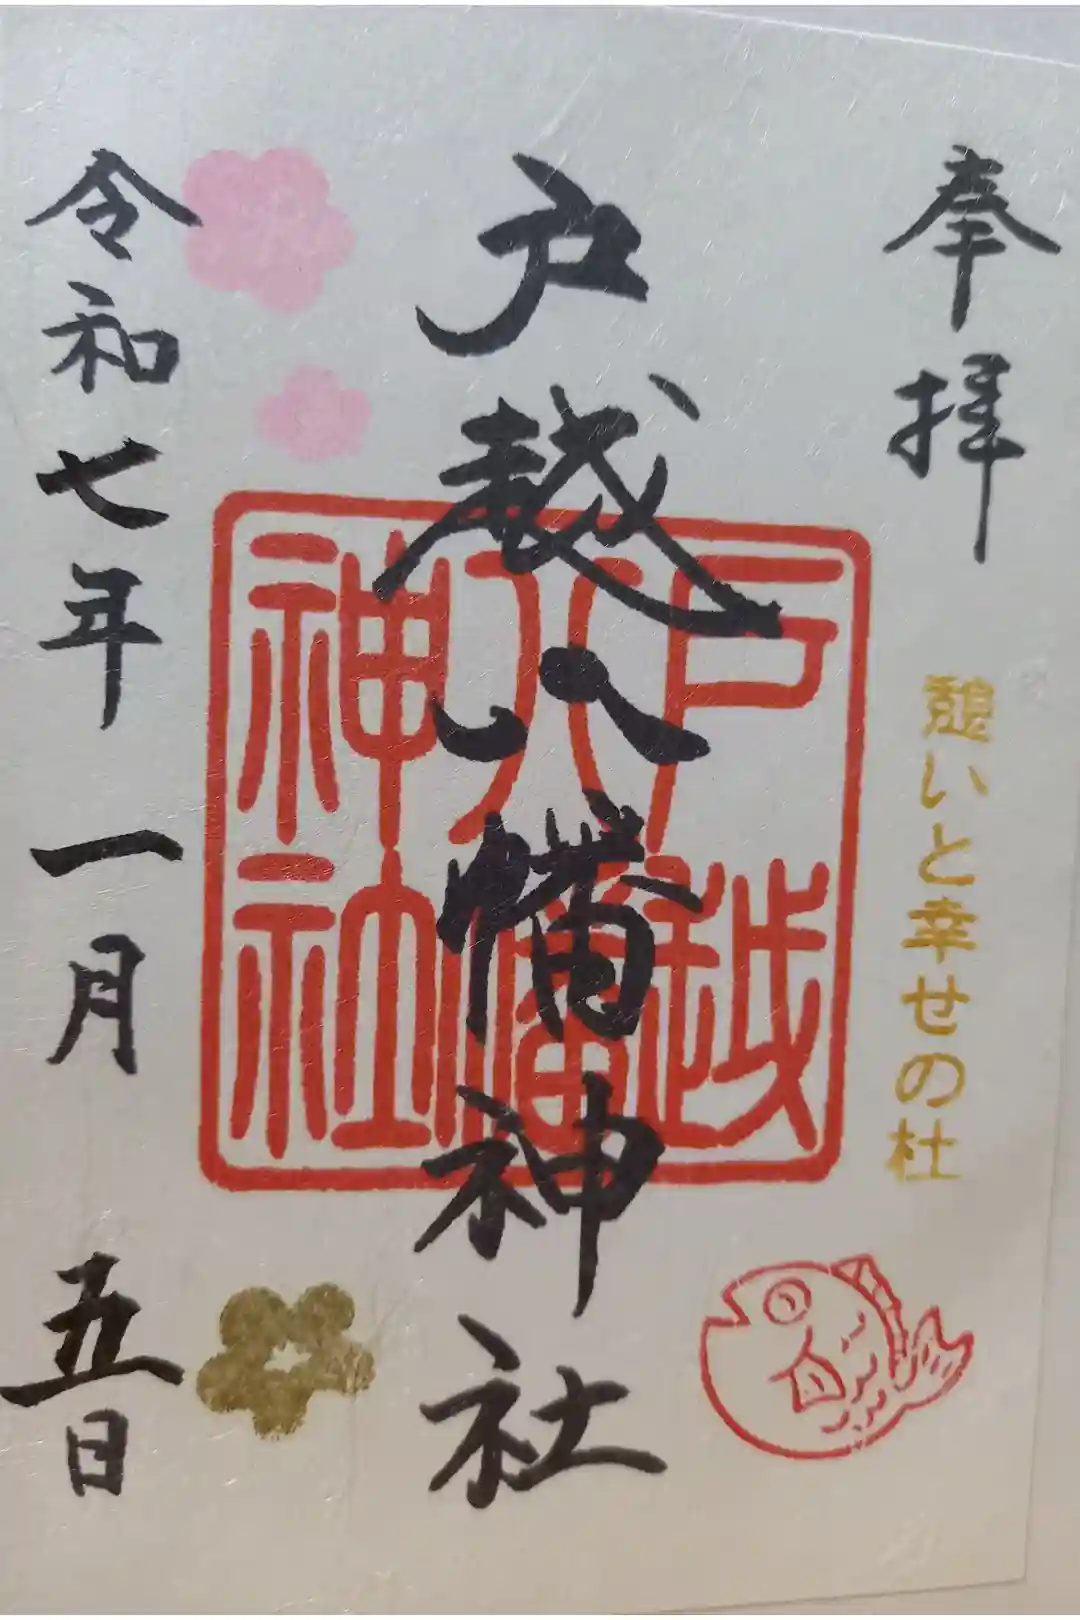 奉拝
憩いと幸せの杜
戸越八幡神社
戸越
八幡
神社
令和七年一月五日